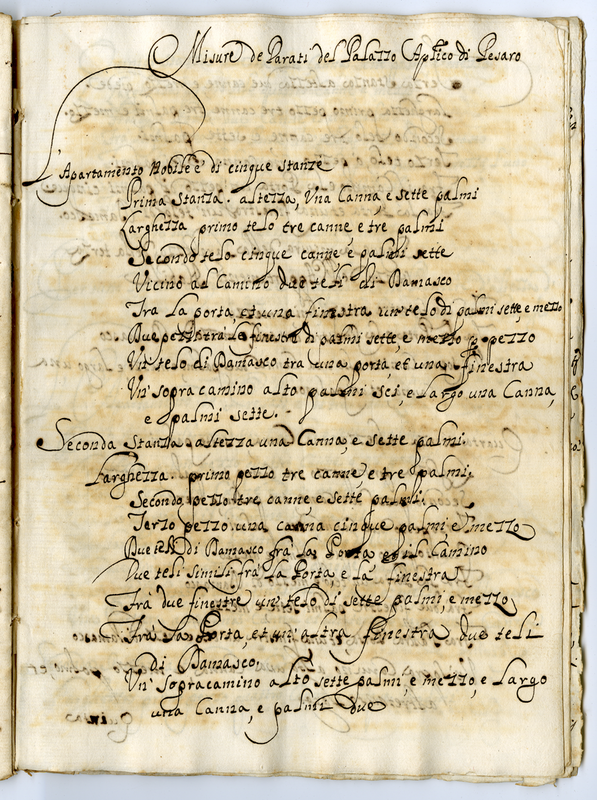 Misure de Parati del Palazzo Aplico di Pesaro
Apartamento Nobile è di cinque stanze
Prima stanza. altezza, Una Canna, e sette palmi
Larghezza primo telo tre canne e tre palmi
Secondo telo cinque canne e palmi sette
Vicino al Camino due teli di Damasco
Tra La porta et una finestra un telo di palmi sette, e mezzo
Due pezzi tra Le finestre di palmi sette, e mezzo p pezzo
Un telo di Damasco tra una porta, et una finestra
Un' sopra camino alto palmi sei, e Largo una Canna,
e palmi sette.
Seconda Stanza altezza una Canna, e sette palmi.
Larghezza primo pezzo tre canne, e tre palmi,
Secondo pezzo tre canne, e sette palmi.
Terzo pezzo una canna cinque palmi e mezzo
Due teli di Damasco fra La Porta, et il Camino
Due teli simili fra La Porta, e La finestra
Fra due finestre un telo di sette palmi, e mezzo
Fra La Porta, et un' altra finestra due teli
di Damasco
Un' sopracamino alto sette palmi, e mezzo, e Largo
una Canna, e palmi due